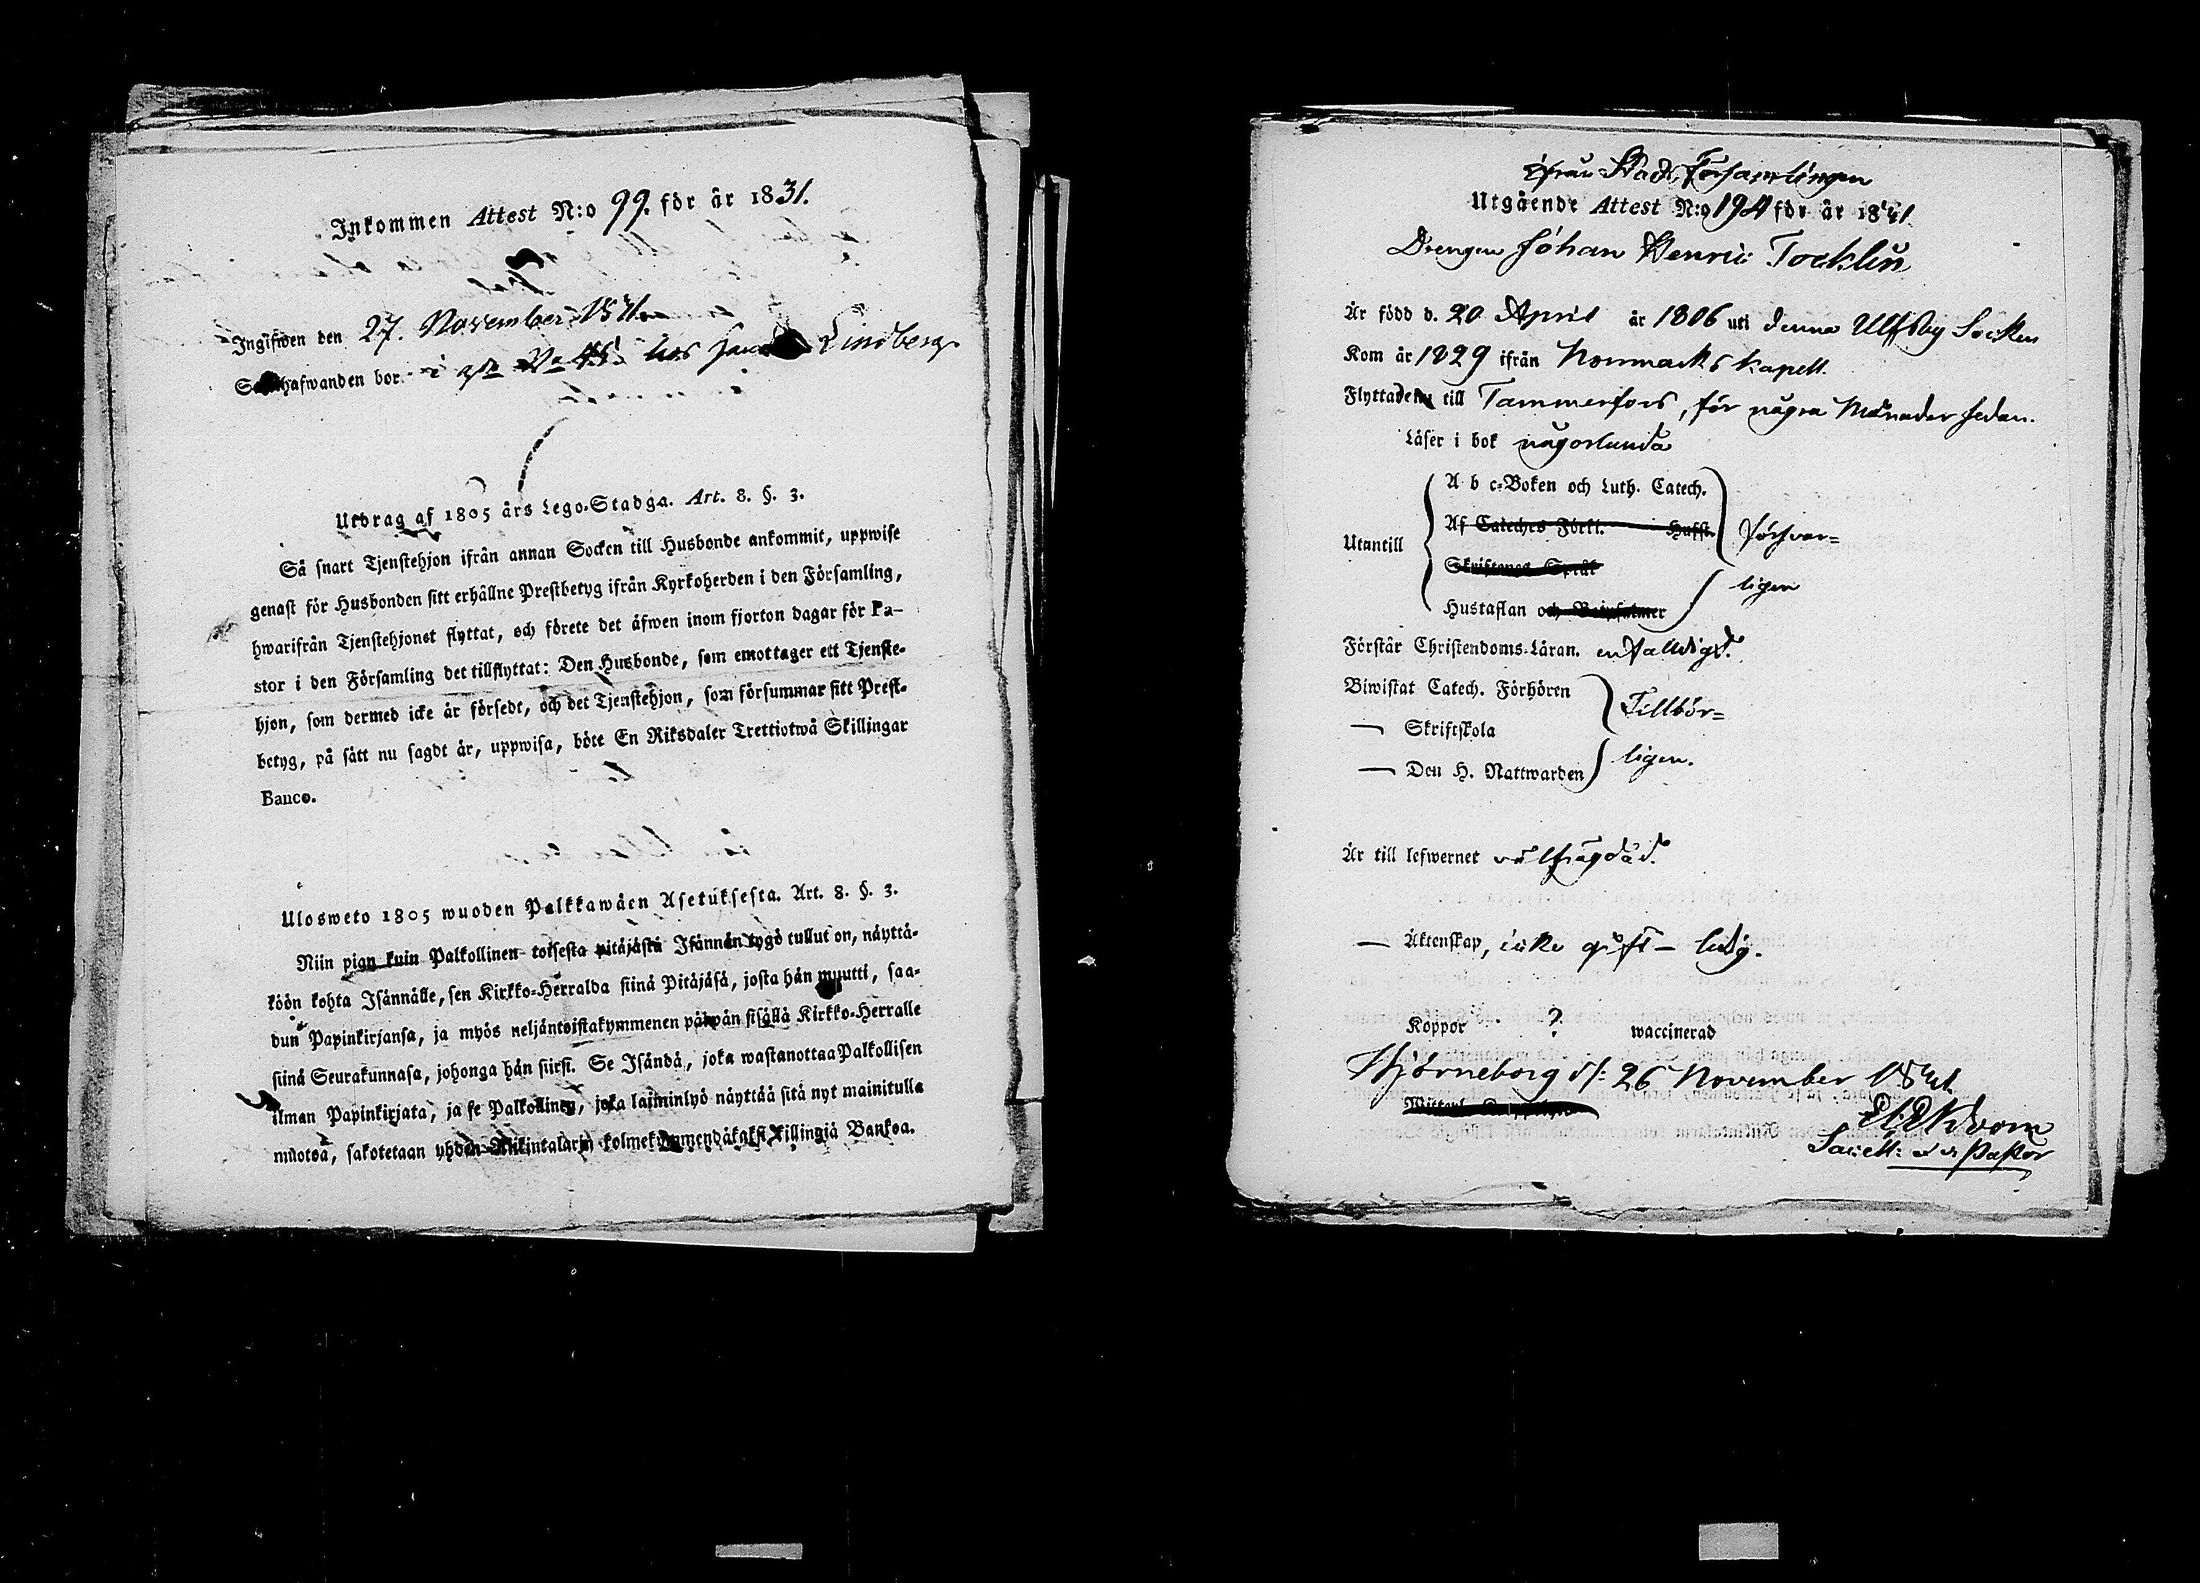 Inkommen Attest N:o 99. för år 1831.
Ingifwen den 27. November 1831.
hafwanden bor i 3dn No 45 hos Lindberg
Utdrag af 1805 års Lego-Stadga. Art. 8. §. 3.
Så snart Tjenstehjon ifrån annan Socken till Husbonde ankommit, uppwise
genast för Husbonden sitt erhållne Prestbetyg ifrån Kyrkoherden i den Församling,
hwarifrån Tjenstehjonet flyttat, och förete det äfwen inom fjorton dagar för Pa-
stor i den Församling det tillflyttat: Den Husbonde, som emottager ett Tjenste-
hjon, som dermed icke är försedt, och det Tjenstehjon, som försummar sitt Prest-
betyg, på sätt nu sagdt är, uppwisa, böte En Riksdaler Trettiotwå Skillingar
Banco.
Ulosweto 1805 wuoden Palkkawäen Asetuksesta. Art. 8. §. 3.
Niin pian kuin Palkollinen toisesta pitäjästä Isännän tygö tullut on, näyttä-
köön kohta Isännälle, sen Kirkko-Herralda siinä Pitäjäsä, josta hän muutti, saa-
dun Papinkirjansa, ja myös neljäntoistakymmenen päiwän sisällä Kirkko-Herralle
siinä Seurakunnasa, johonga hän siirsi. Se Isändä, joka wastanottaa Palkollisen
ilman Papinkirjata, ja se Palkollinen, joka laiminlyö näyttää sitä nyt mainitulla
muotoa, sakotetaan yhden Riikintalarin kolmekymmendäkaksi killingiä Bankoa.
ifrån Stads Församlingen
Utgående Attest N:o 194 för år 1831.
Drengen Johan Henric Tocklin
Är född d. 20 April år 1806 uti denna Ulfsby Socken
Kom år 1829 ifrån Normarks Kapell.
Flyttade till Tammerfors, för några Månader sedan.
Läser i bok någorlunda
A b c-Boken och Luth. Catech.
Af Cateches Förkl. Hufst. försvar=
Utantill
Skriftenes Språk
ligen
Hustaflan och
Förstår Christendoms-Läran. enfalldigt.
Biwistat Catech. Förhören Tillbör=
— Skriftskola
— Den H. Nattwarden ligen.
Är till lefwernet välfrägdad.
— Äktenskap, icke gift - ledig.
Koppor ? waccinerad
Björneborg d: 26 November 1831.
Sacell: o Pastor